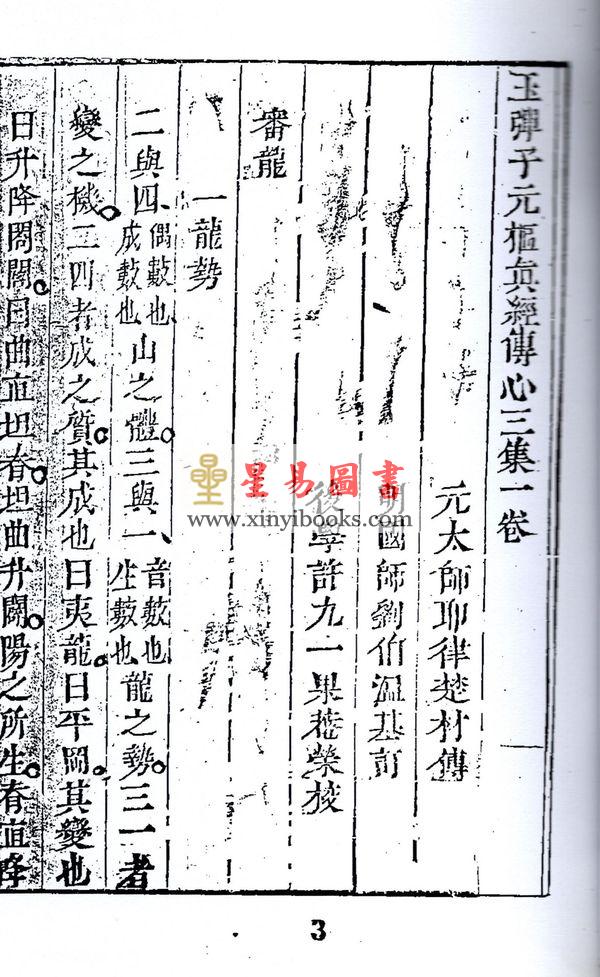 玉彈子元樞眞經傳心三集一卷
元太師耶律楚材傳
明國師劉伯溫基訂
後學許九一果菴榮校
審龍
一龍勢
二與四、偶數也、成數也、山之體。三與一、音數也、生數也、龍之勢。三一者
變之機。二四者成之質。其成也曰夷龍。曰平岡。其變也
日升降闊闔。曰曲直坦。有坦曲升闢。陽之所生。有直降
星易圖書
www.xinyibooks.com
3